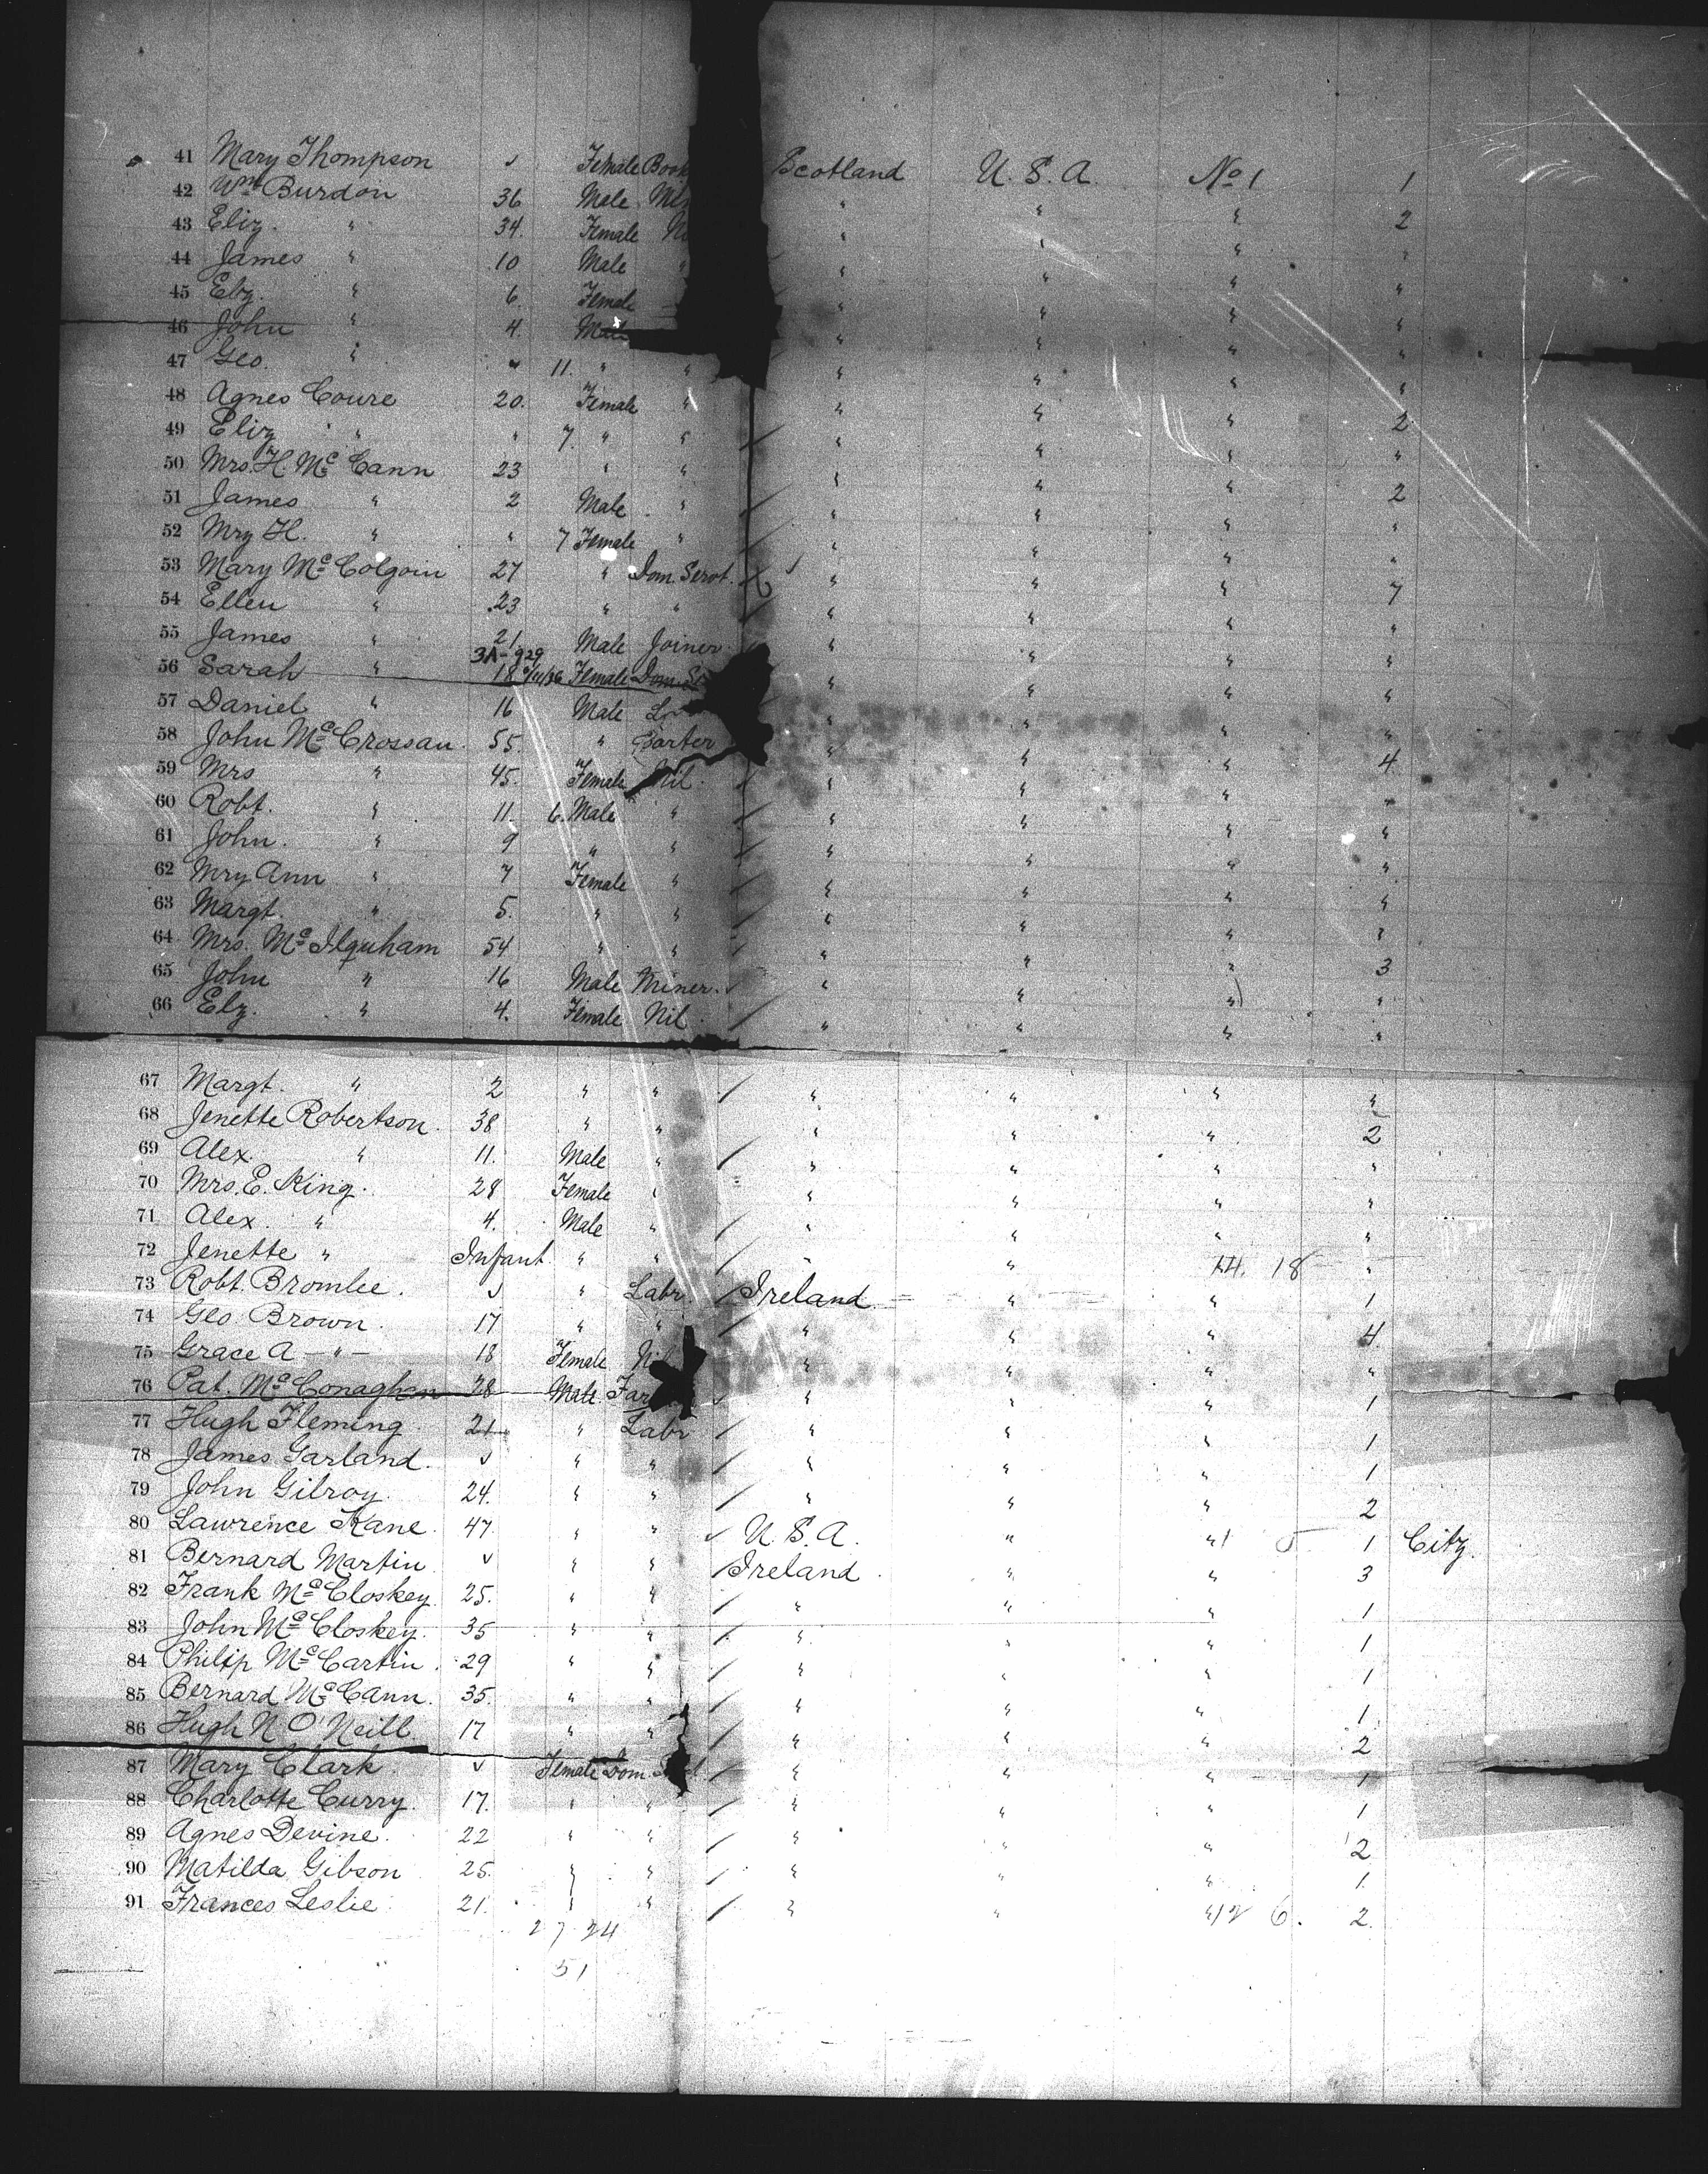 41 Mary Thompson ✓ Female Book Scotland U.S.A. No 1 1
42 Wm Burdon 36 Male " " " 2
43 Eliz. " 34. Female " " " "
44 James " 10 Male " " " " "
45 Elz. " 6. Female " " " "
46 John " 4. Male " " " "
47 Geo. " " 11. " " " " " "
48 Agnes Coure 20. Female " " " " 2
49 Eliz " " 7. " " " " " "
50 Mrs. H. McCann 23 " " " " " 2
51 James " 2 Male " " " " "
52 Mry H. " " 7 Female " " " " "
53 Mary McColgoin 27 " Dom. Servt. " " " 7
54 Ellen " 23 " " " " " "
55 James " 21 Male Joiner " " " "
3A-929
56 Sarah " 18 Female Dom. " " " "
57 Daniel " 16 Male " " " "
58 John McCrossan 55. " Porter " " " 4
59 Mrs " 45. Female Nil. " " " "
60 Robt. " 11. 6. Male " " " " "
61 John. " 9 " " " " " "
62 Mry Ann " 7 Female " " " " "
63 Margt. " 5. " " " " " "
64 Mrs. McIlquham 54 " " " " " 3
65 John " 16 Male Miner. " " " "
66 Elz. " 4. Female Nil " " " "
67 Margt. " 2 " " " " " "
68 Jenette Robertson. 38 " " " " " 2
69 Alex. " 11. Male " " " " "
70 Mrs. E. King. 28 Female " " " " "
71 Alex. " 4. Male " " " " "
72 Jenette " Infant. " " " " 14. 18 "
73 Robt. Bromlee. ✓ " Labr. Ireland " " 1
74 Geo. Brown. 17 " " " " " 4
75 Grace A - " - 18 Female Nil " " " "
76 Pat. McConaghen 28 Male Far " " " 1
77 Hugh Fleming. 21 " Labr " " " 1
78 James Garland. ✓ " " " " " 1
79 John Gilroy. 24. " " " " " 2
80 Lawrence Kane. 47. " " U.S.A. " " 1 5 1 Citz.
81 Bernard Martin ✓ " " Ireland. " " 3
82 Frank McCloskey. 25. " " " " " 1
83 John McCloskey. 35 " " " " " 1
84 Philip McCartin. 29 " " " " " 1
85 Bernard McCann. 35. " " " " " 1
86 Hugh N O'Neill 17 " " " " " 2
87 Mary Clark. ✓ Female Dom. " " " 1
88 Charlotte Curry. 17. " " " " " 1
89 Agnes Devine. 22 " " " " " 2
90 Matilda Gibson 25. " " " " " 1
91 Frances Leslie. 21. " " " " " 12 6. 2.
27 24
51